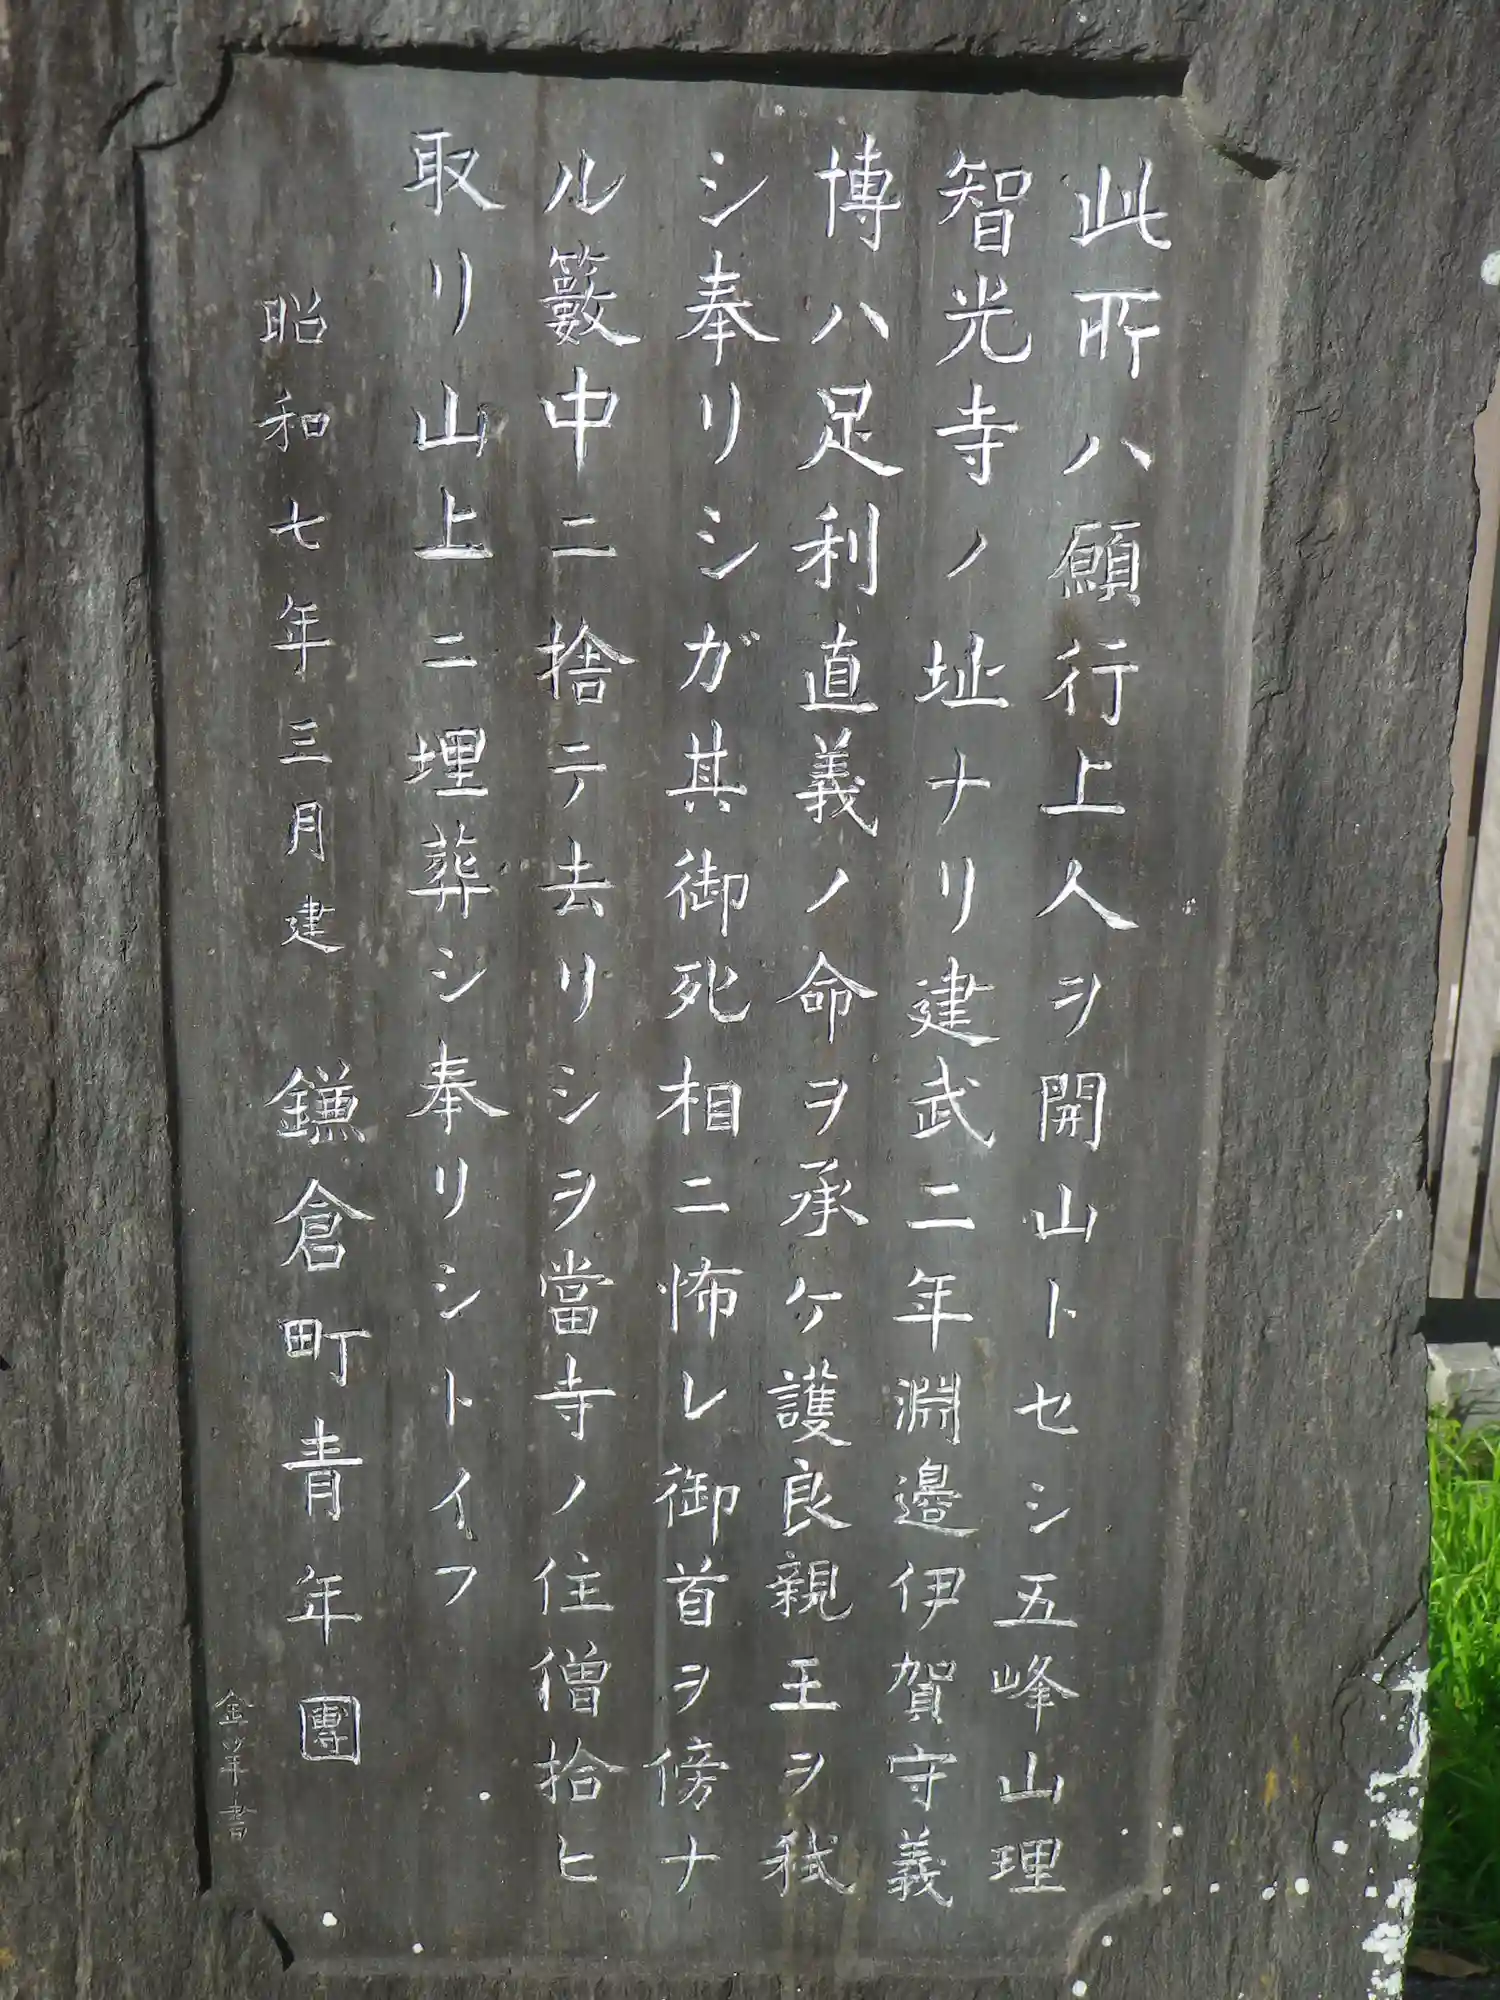 此所ハ願行上人ヲ開山トセシ五峰山理
智光寺ノ址ナリ建武二年淵邊伊賀守義
博ハ足利直義ノ命ヲ承ケ護良親王ヲ弑
シ奉リシガ其御死相ニ怖レ御首ヲ傍ナ
ル籔中ニ捨テ去リシヲ當寺ノ住僧拾ヒ
取リ山上ニ埋葬シ奉リシトイフ
昭和七年三月建 鎌倉町青年團